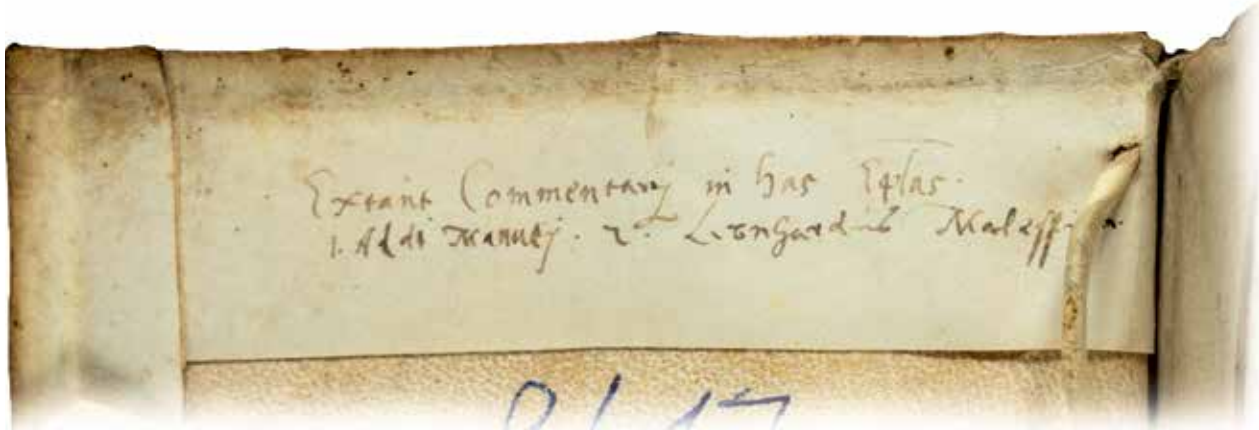 Extant Commentarij in has Eplas.
1. Aldi Manutij. 2. Leonhardus